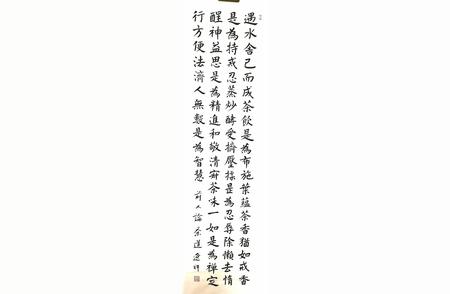 遇水舍己而成茶飲是為布施葉蘊茶香猶如戒香
是為持戒忍蒸炒酵受擠壓揉是為忍辱除懶去惰
醒神益思是為精進和敬清寂茶味一如是為禪定
行方便法濟人無數是為智慧 前人論茶道